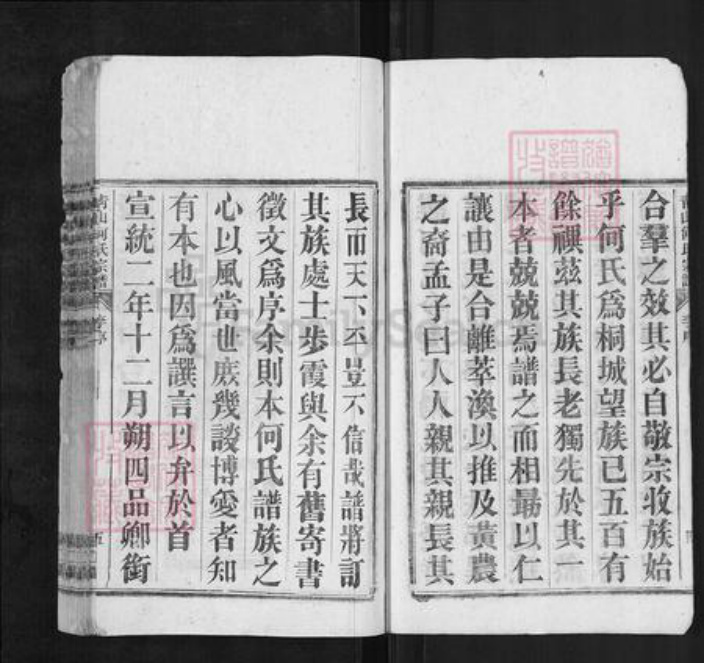 合羣之效其必自敬宗收族始
乎何氏爲桐城望族已五百有
餘禩茲其族長老獨先於其一
本者兢兢焉譜之而相勗以仁
讓由是合離萃渙以推及黃農
之裔孟子曰人人親其親長其
長而天下平豈不信哉譜將訂
其族處士步霞與余有舊寄書
徵文爲序余則本何氏譜族之
心以風當世庶幾談博愛者知
有本也因爲譔言以弁於首
宣統二年十二月朔四品卿銜
青山何氏宗譜
五
FamilySearch